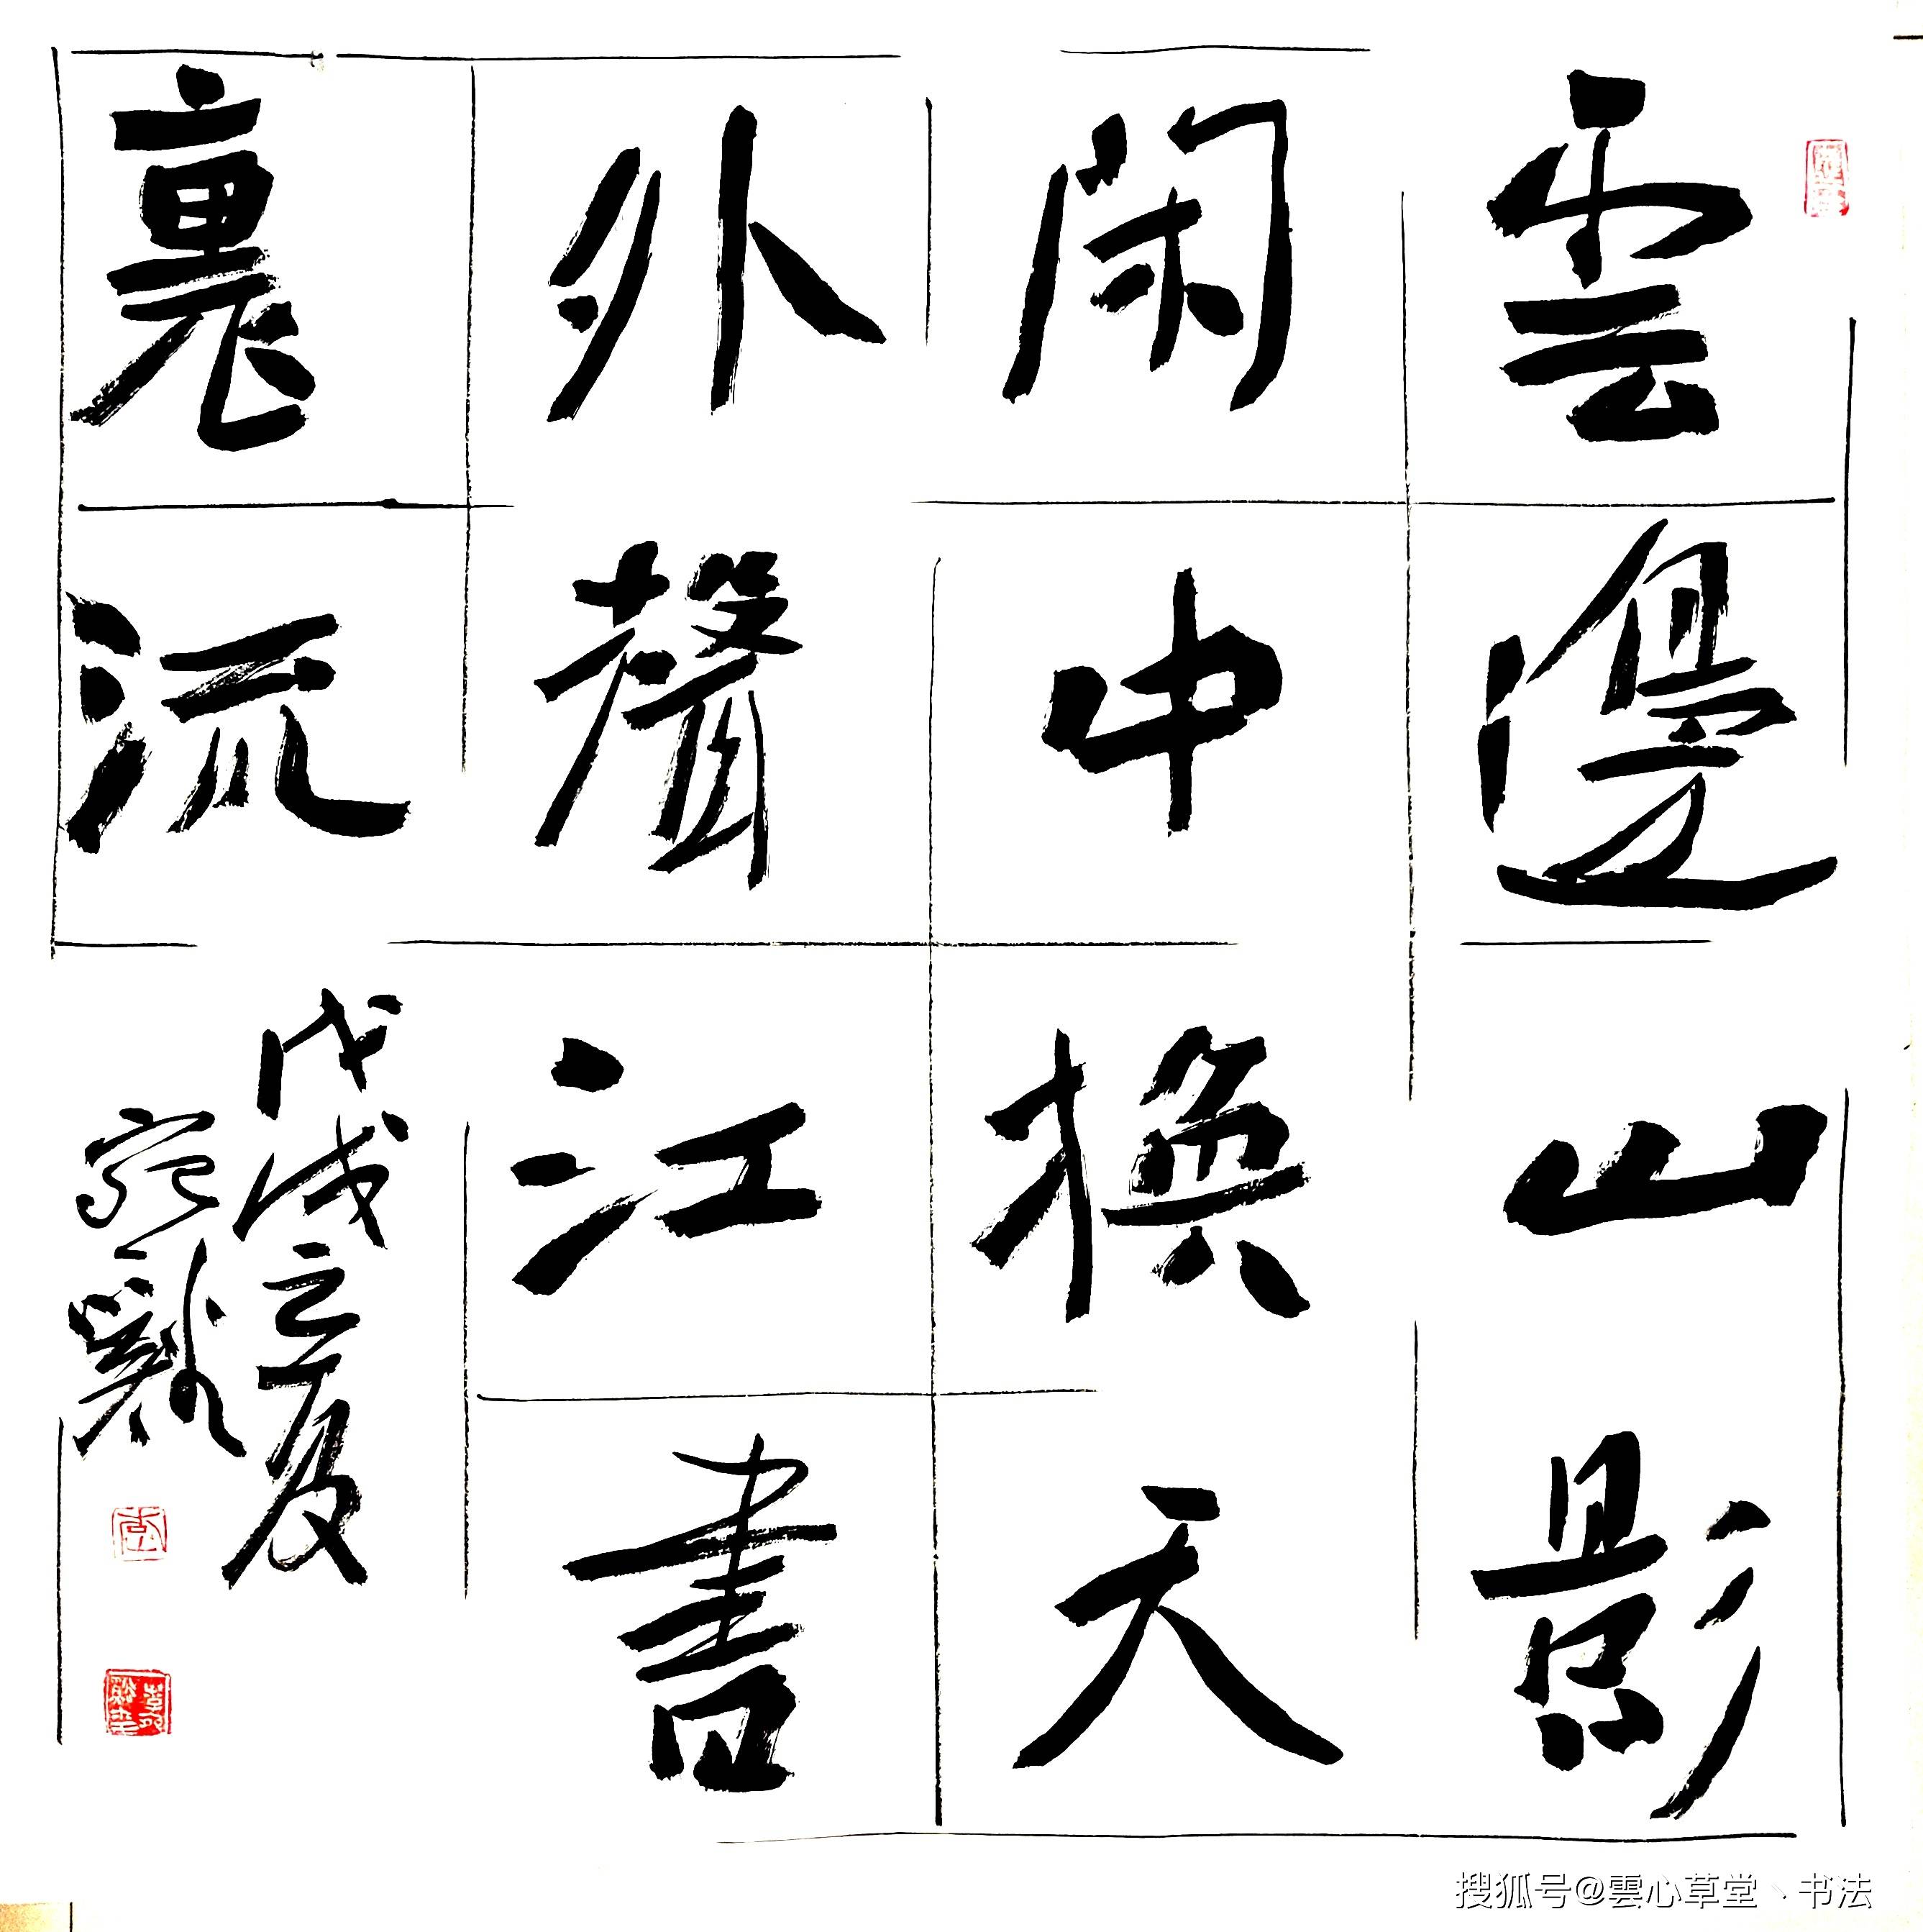 雲邊山影
閑中換天
外聲江書
裏流
戊戌之夏
搜狐号@雲心草堂丶书法